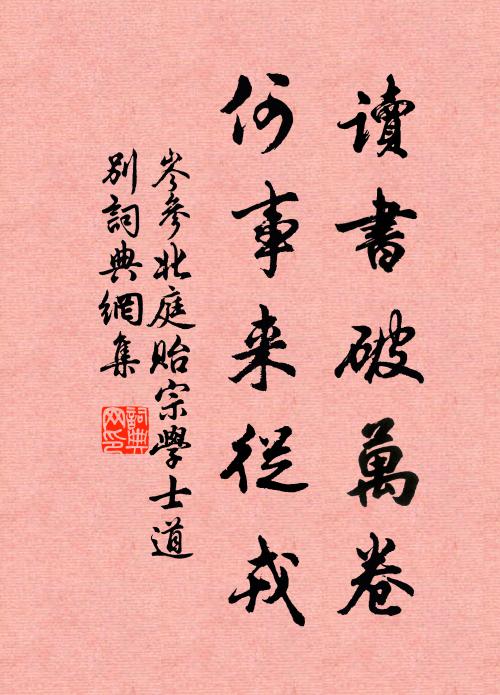 讀書破萬卷
何事来從戎
岑參北庭貽宗學士道
別詞典網集
詞典
网印